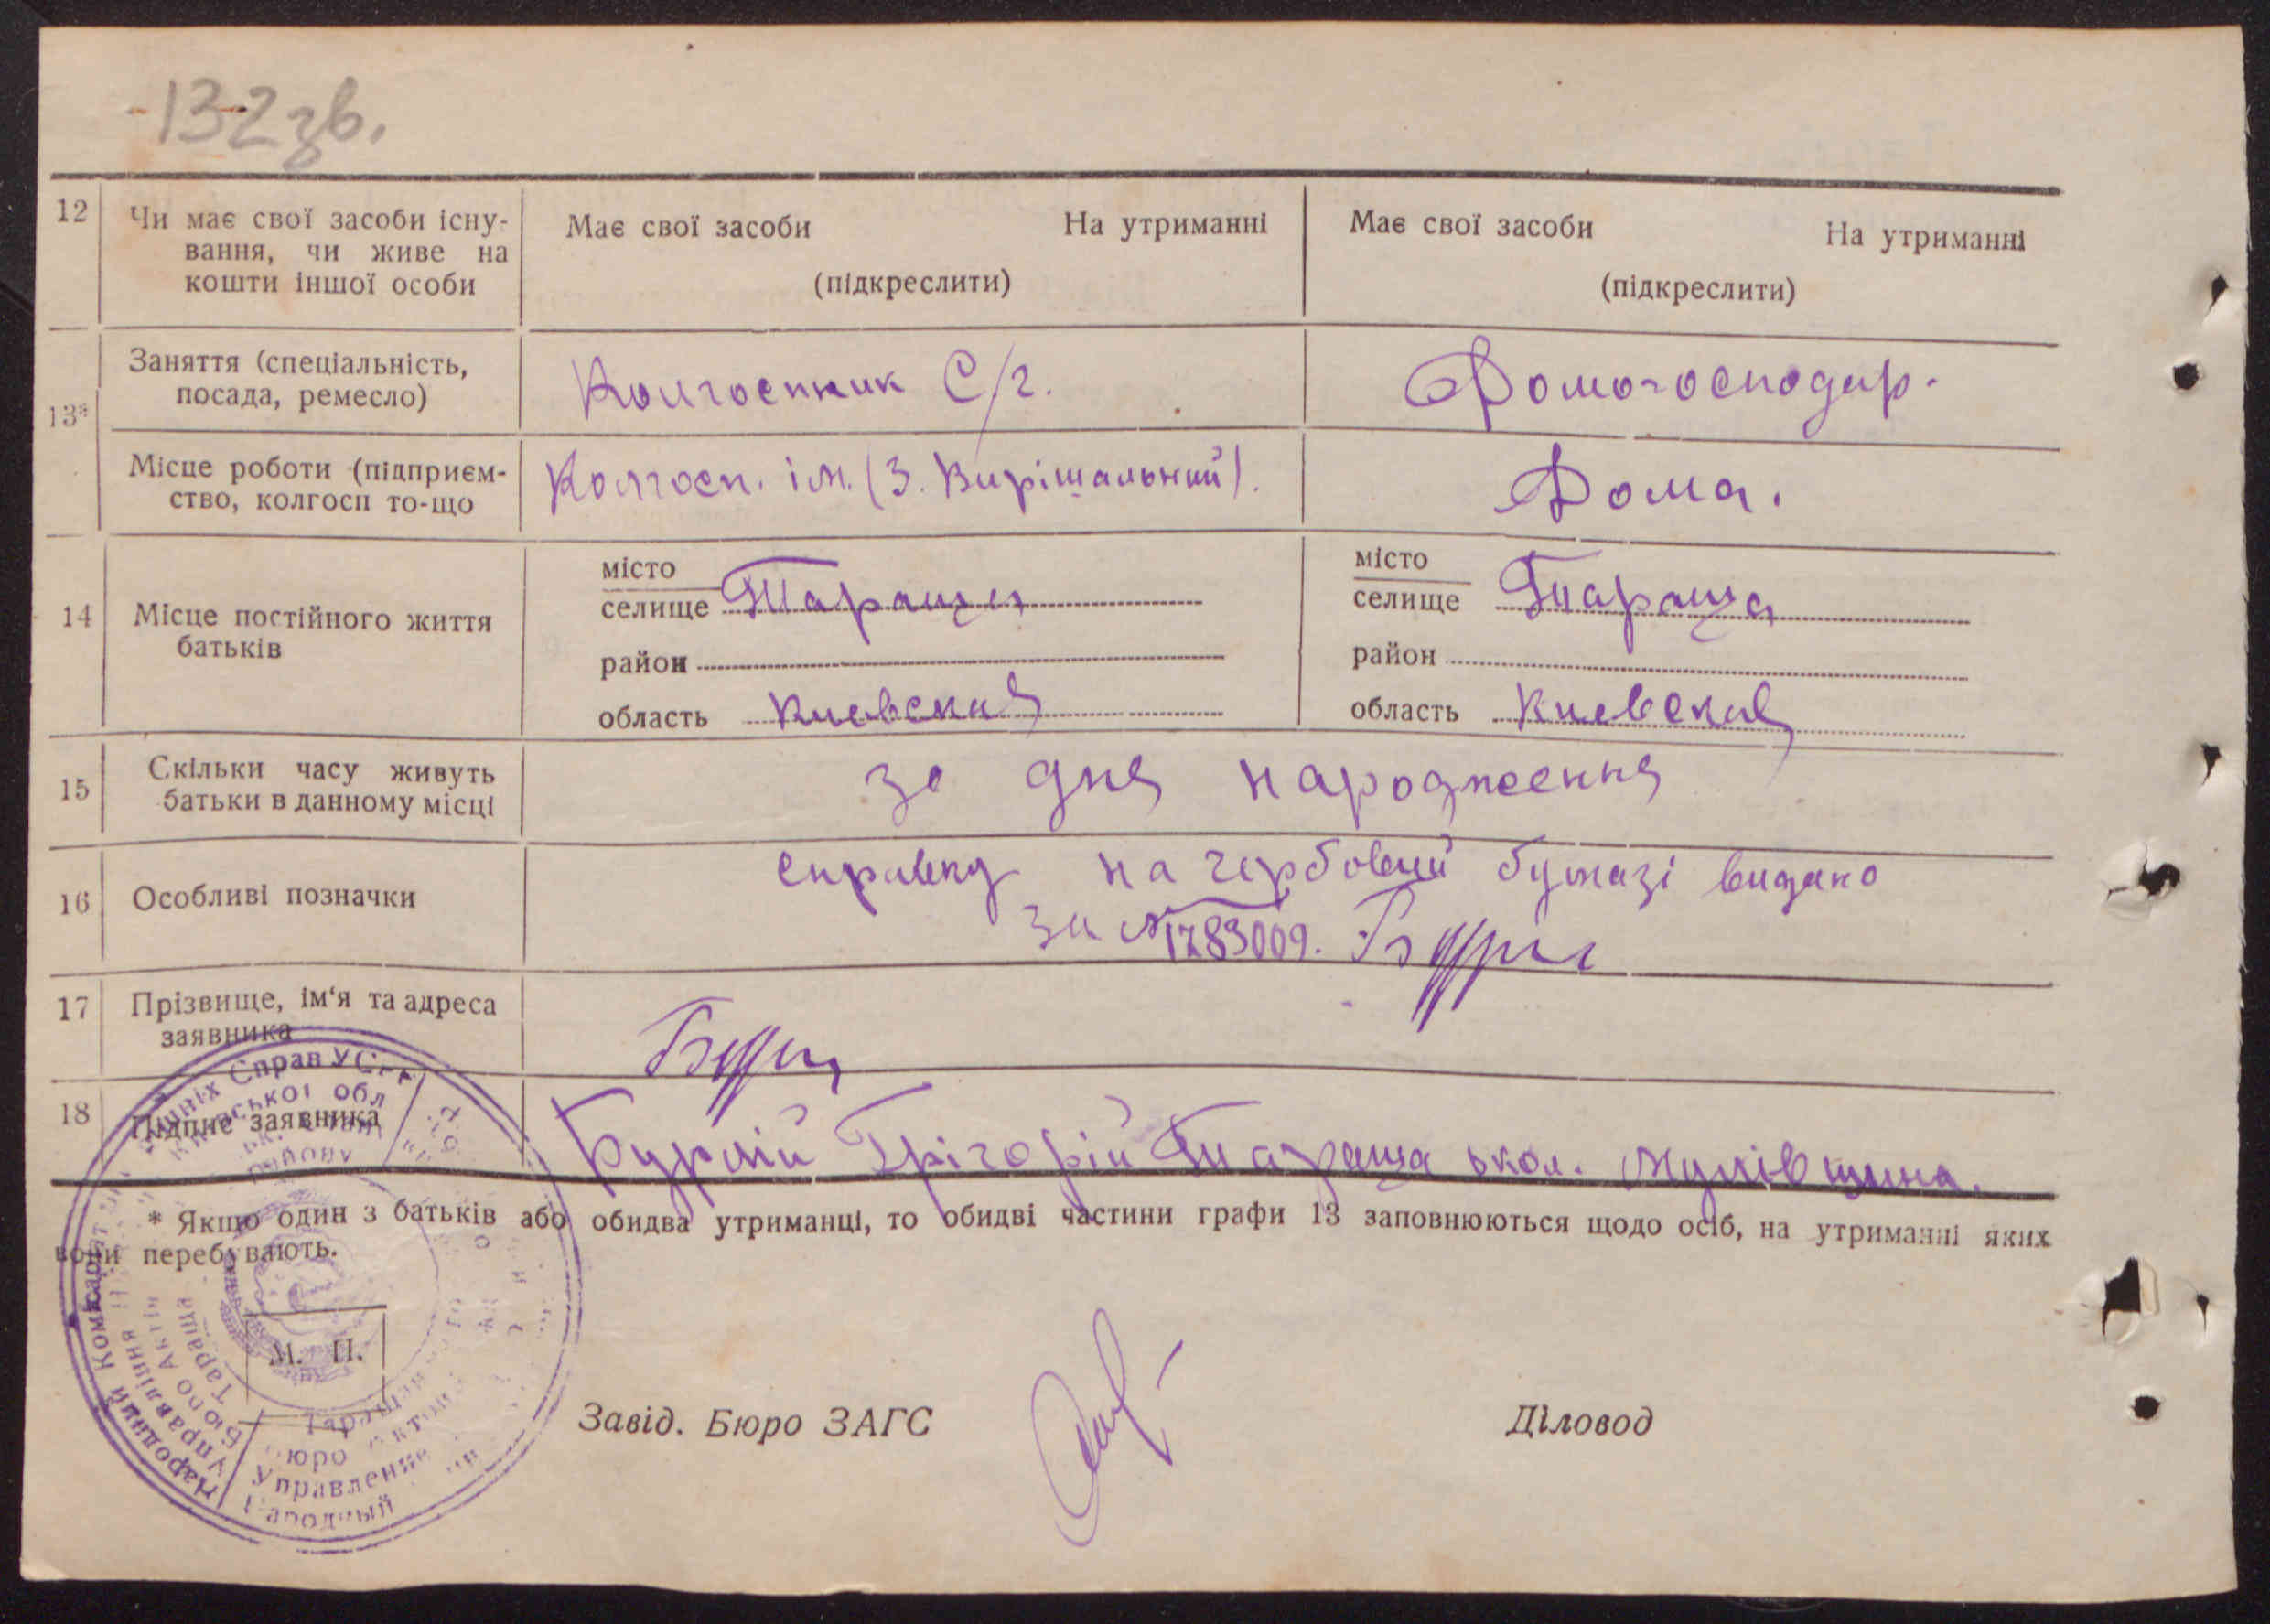 132 зв.
12
Чи має свої засоби існу-
вання, чи живе на
кошти іншої особи
Має свої засоби На утриманні
(підкреслити)
Має свої засоби На утриманні
(підкреслити)
13*
Заняття (спеціальність,
посада, ремесло)
Колгоспник С/г.
Домогосподар.
Місце роботи (підприєм-
ство, колгосп то-що
Колгосп. ім. (3. Вирішальний).
Дома.
14
Місце постійного життя
батьків
місто
селище Тараща
район
область Киевская
місто
селище Тараща
район
область Киевская
15
Скільки часу живуть
батьки в данному місці
зо дня народження
16
Особливі позначки
справку на гербовий бумазі видано
за № 1783009.
17
Прізвище, ім'я та адреса
заявника
18
Підпис заявника
Бурлій Грігорій Тараща
* Якщо один з батьків або обидва утриманці, то обидві частини графи 13 заповнюються щодо осіб, на утриманні яких
вони перебувають.
М. П.
Завід. Бюро ЗАГС
Діловод
Народний Комісаріат
Справ
Київської обл
Управління
Бюро Актів
Тараща
Управление